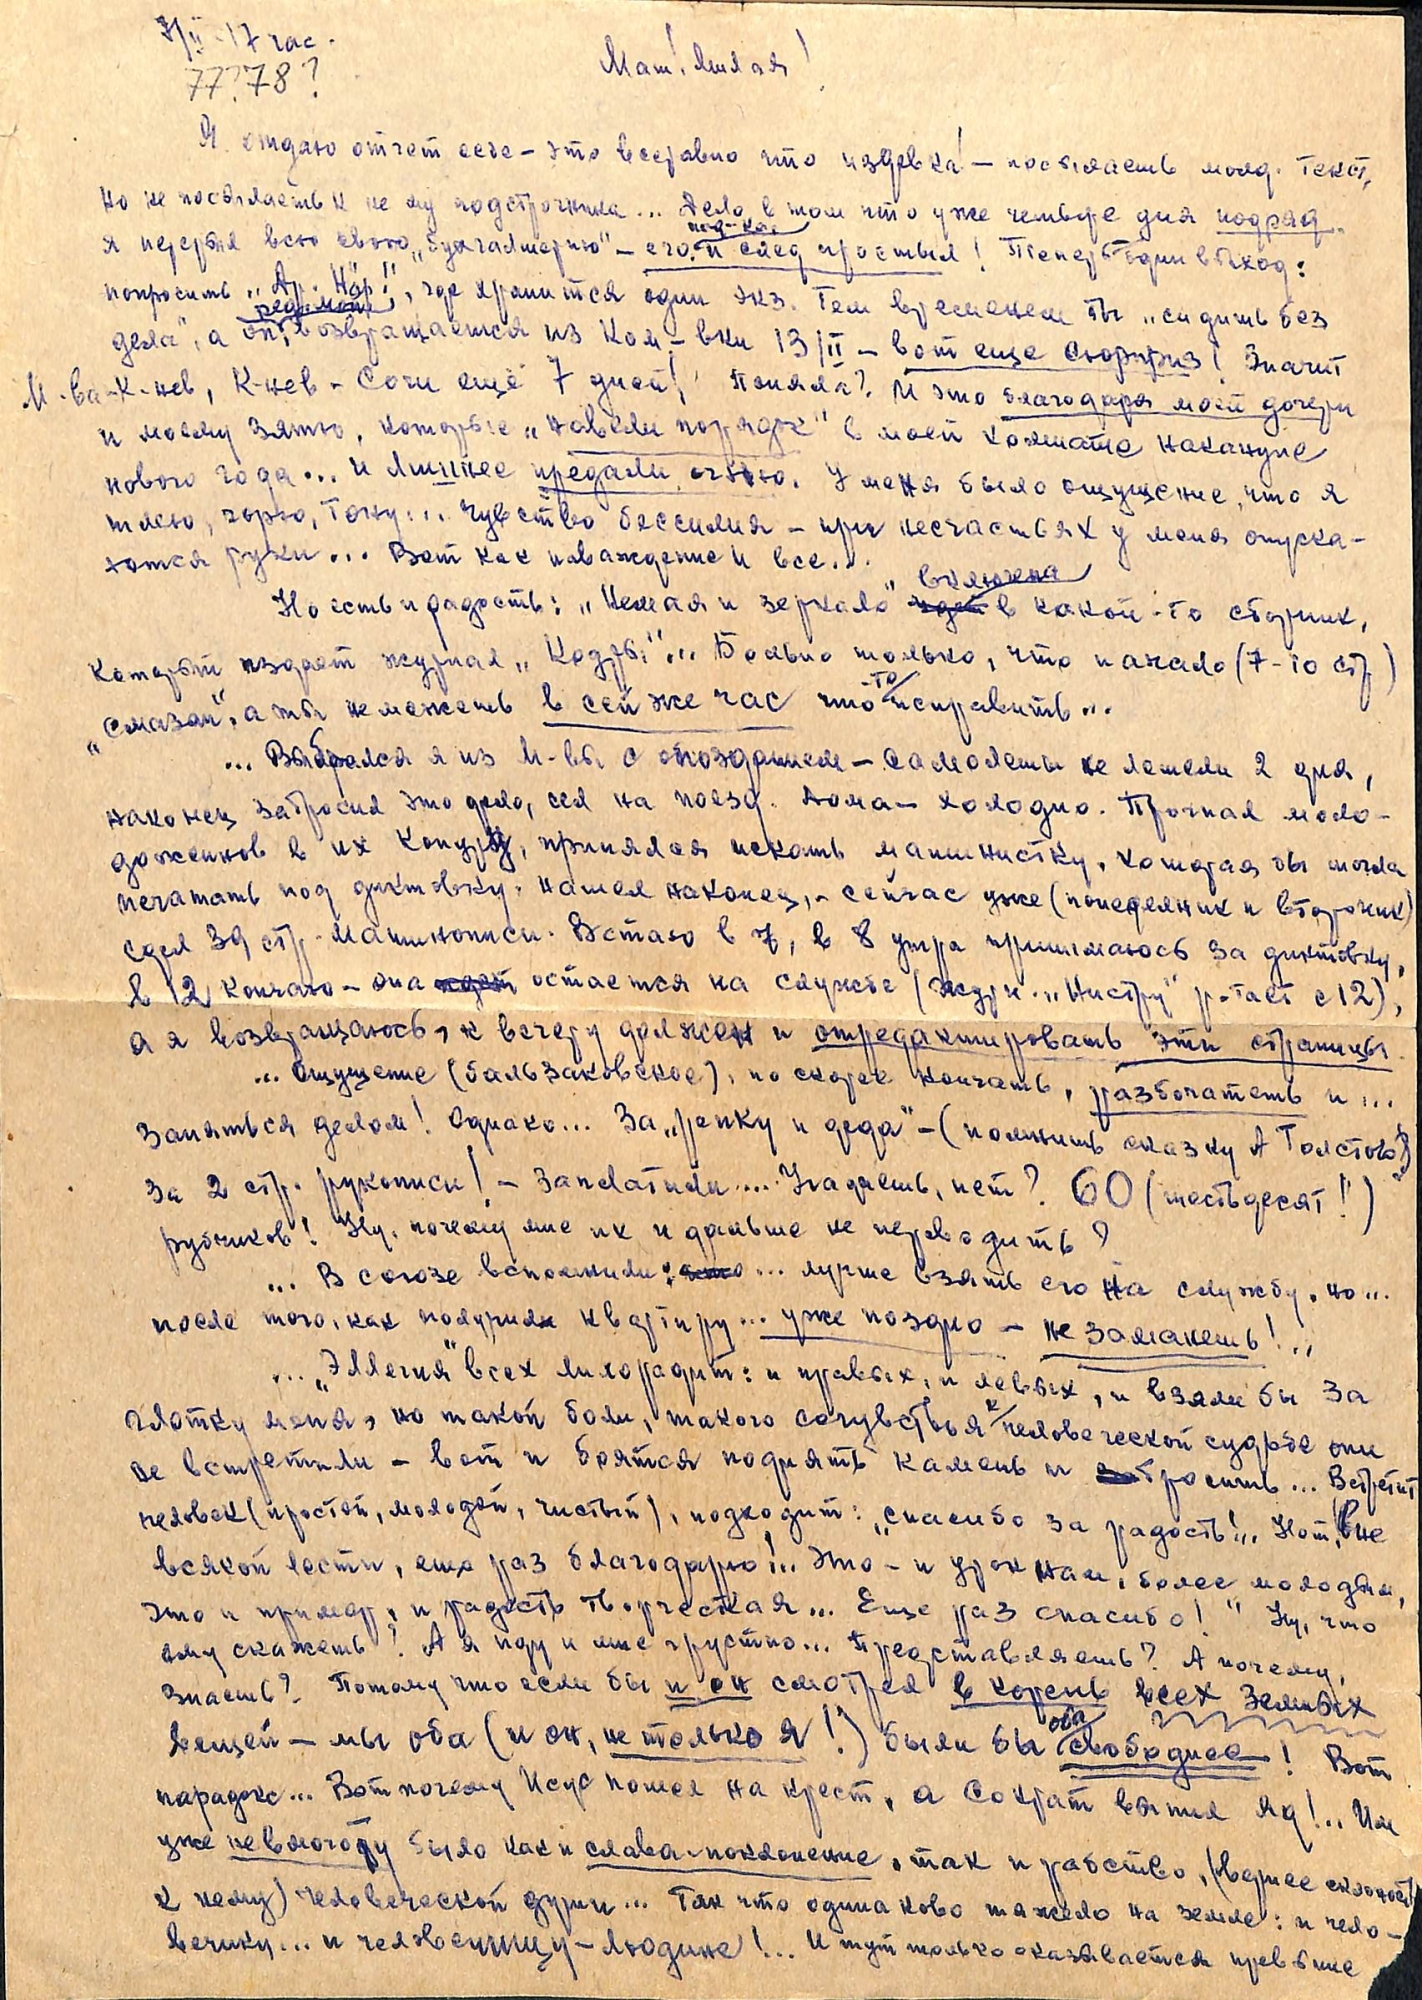 7/II - 17 час.
77? 78?
Мат! Милая!
Я отдаю отчет себе – это всеравно что издевка! – посылаешь молд. текст,
но не посылаешь к нему подстрочника... Дело в том что уже четыре дня подряд
я перерыл всю свою „бухгалтерию" – его и след простыл! Теперь один выход:
попросить „Др. Нар.", где хранится один экз. Тем временем ты „сидишь без
дела", а он возвращается из Ком-вки 13/II – вот еще сюрприз! Значит
М-ва-К-нев, К-нев - Сочи еще 7 дней! Поняла? И это благодаря моей дочери
и моему зятю, которые „навели порядок" в моей комнате накануне
нового года... и лишнее предали огню. У меня было ощущение, что я
тлею, горю, тону... Чувство бессилия – при несчастьях у меня опуска-
ются руки... Вот как наваждение и все...
Но есть и радость: „Немая и зеркало" включена в какой-то сборник,
который издает журнал „Кодры"... Больно только, что начало (7-10 стр)
„смазан", а ты не можешь в сей же час что-то исправить...
... Выбрался я из М-вы с опозданием – самолеты не летели 2 дня,
наконец забросил это дело, сел на поезд. Дома – холодно. Прогнал моло-
доженов в их конуру, принялся искать машинистку, которая бы могла
печатать под диктовку, нашел наконец, – сейчас уже (понедельник и вторник)
сдел 39 стр. машинописи. Встаю в 7, в 8 утра принимаюсь за диктовку,
в 12 кончаю – она остается на службе (журн. „Нистру" р-тает с 12),
а я возвращаюсь, к вечеру должен и отредактировать эти страницы.
... Ощущение (бальзаковское), по скорее кончать, разбогатеть и...
Заняться делом! Однако... За „репку и деда" – (помнишь сказку А Толстого?)
За 2 стр. рукописи! – заплатили.... Угадаешь, нет? 60 (шестьдесят!)
рубчиков! Ну, почему мне их и дальше не переводить?
... В союзе вспомнили: ... лучше взять его на службу, но...
после того, как получил квартиру... уже поздно – не заманешь!..
... „Эллегия" всех лихорадит: и правых, и левых, и взяли бы за
глотку меня, но такой боли, такого сочувствья к человеческой судьбе они
не встретили – вот и боятся поднять камень и бросить... Встретит
человек (простой, молодой, чистый), подходит: „спасибо за радость!.. Нет, не
всякой лести, еще раз благодарю!.. Это – и урок нам, более молодым,
это и пример, и радость творческая... Еще раз спасибо!" Ну, что
ему скажешь? А я иду и мне грустно... Представляешь? А почему,
знаешь? Потому что если бы и он смотрел в корень всех земных
вещей – мы оба (и он, не только я!) были бы оба свободнее! Вот
парадокс... Вот почему Исус пошел на крест, а Сократ выпил яд!.. Им
уже невмоготу было как и слава-поклонение, так и рабство, (вернее склонность
к нему) человеческой души... Так что одинаково тяжело на земле: и чело-
вечику... и человечищу – людине!... И тут только оказывается превыше